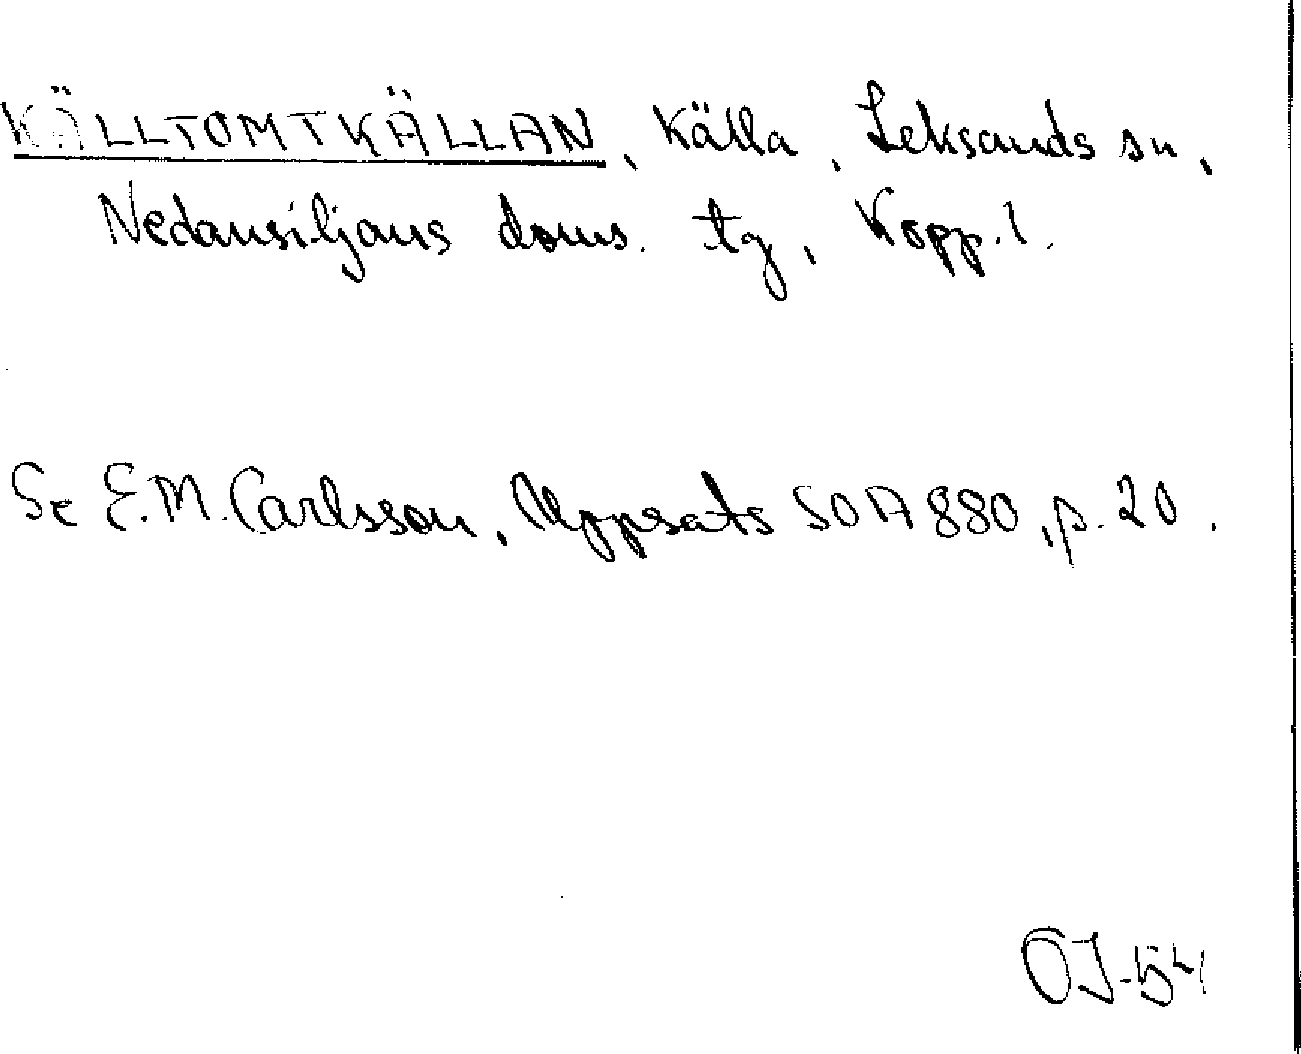 KÄLLTOMTKÄLLAN, Källa, Leksands sn,
Nedansiljans doms. tg, Kopp. l.
Se E.M. Carlsson, Uppsats SOA 880, p. 20.
OJ-54